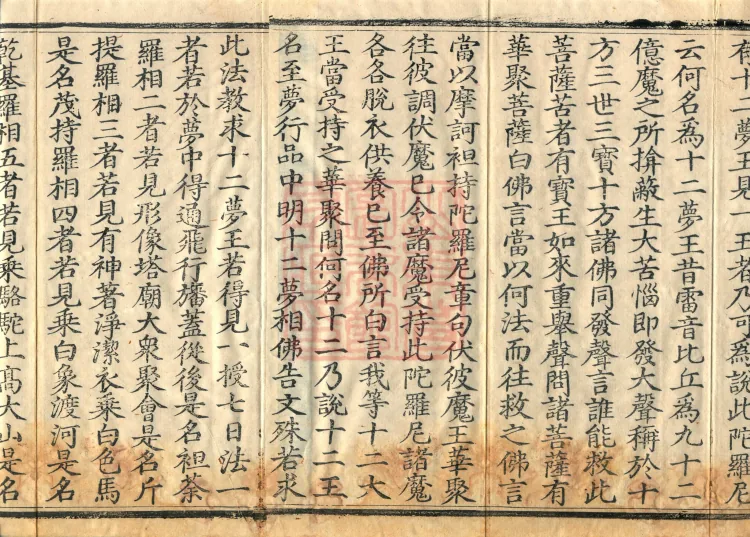 有十二夢王見一王者乃可為說此陀羅尼
云何名為十二夢王昔雷音比丘為九十二
億魔之所揜蔽生大苦惱即發大聲稱於十
方三世三寶十方諸佛同發聲言誰能救此
菩薩苦者有寶王如來重舉聲問諸菩薩有
華聚菩薩白佛言當以何法而往救之佛言
當以摩訶袒持陀羅尼章句伏彼魔王華聚
往彼調伏魔已令諸魔受持此陀羅尼諸魔
各各脫衣供養已至佛所白言我等十二大
王當受持之華聚問何名十二乃說十二王
名至夢行品中明十二夢相佛告文殊若求
此法教求十二夢王若得見一授七日法一
者若於夢中得通飛行旛蓋從後是名袒荼
羅相二者若見形像塔廟大眾聚會是名斤
提羅相三者若見有神著淨潔衣乘白色馬
是名茂持羅相四者若見乘白象渡河是名
乾基羅相五者若見乘駱駝上高大山是名